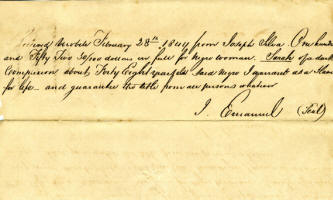 Received Mobile February 28th 1844 from Joseph Silva One hundred
and Fifty Five 50/100 dollars in full for Negro woman. Sarah of a dark
Complexion about Forty Eight years old Said Negro I warrant as a Slave
for life and guarantee the title from all persons whatever
I. Emanuel (Seal)